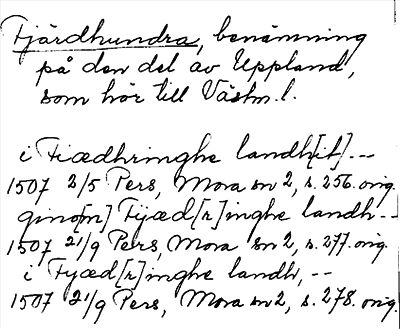 Fjärdhundra, benämning
på den del av Uppland,
som hör till Västm. l.
i Fiædhringhe landh[it] --
1507 2/5 Pers, Mora sn 2, s. 256. orig.
gino[m] Fyæd[r]inghe landh --
1507 21/9 Pers, Mora sn 2, s. 277. orig.
i Fyæd[r]inghe landh, --
1507 21/9 Pers, Mora sn 2, s. 278. orig.